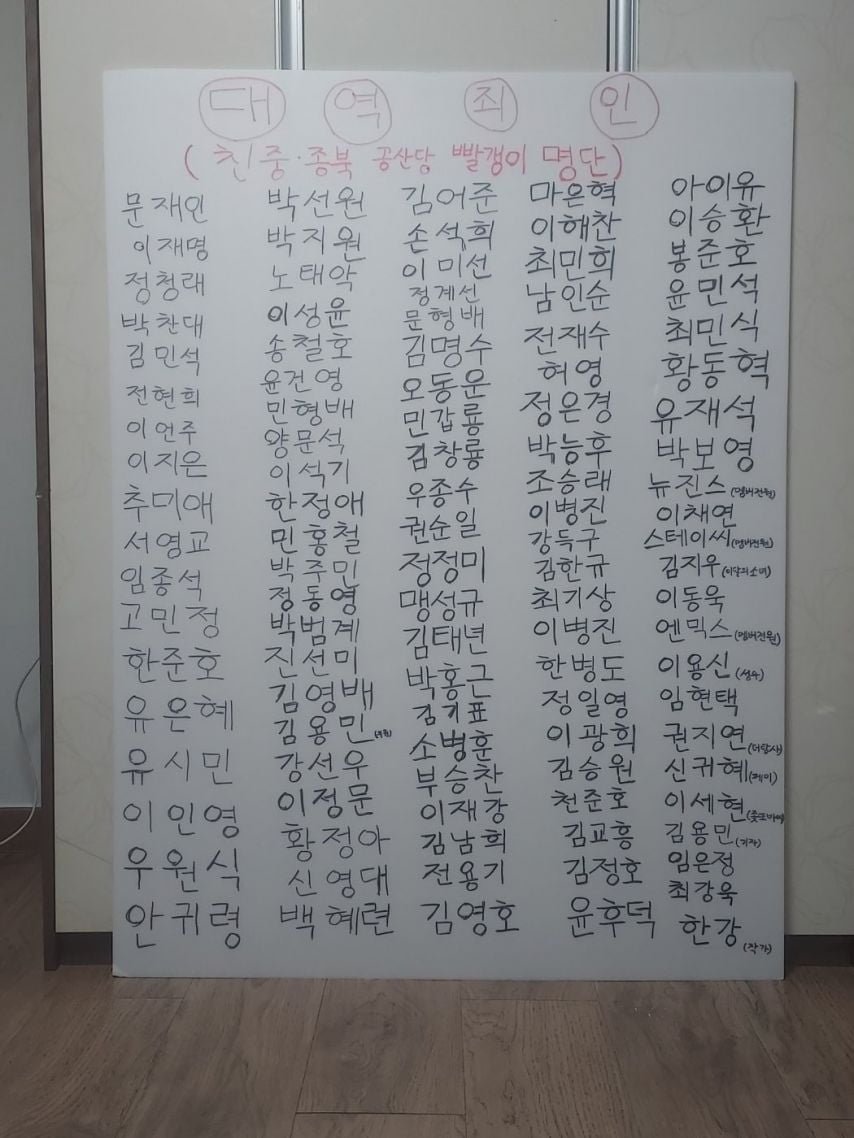 대 역 죄 인
(친중·종북 공산당 빨갱이 명단)
문재인
이재명
정청래
박찬대
김민석
전현희
이언주
이지은
추미애
서영교
임종석
고민정
한준호
유은혜
유시민
이인영
우원식
안귀령
박선원
박지원
노태악
이성윤
송철호
윤건영
민형배
양문석
이석기
한정애
민홍철
박주민
정동영
박범계
진선미
김영배
김용민
강선우
이정문
황정아
신영대
백혜련
김어준
손석희
이미선
정계선
문형배
김명수
오동운
민갑룡
김창룡
우종수
권순일
정정미
맹성규
김태년
박홍근
김기표
소병훈
부승찬
이재강
김남희
전용기
김영호
마은혁
이해찬
최민희
남인순
전재수
허영
정은경
박능후
조승래
이병진
강득구
김한규
최기상
이병진
한병도
정일영
이광희
김승원
천준호
김교흥
김정호
윤후덕
아이유
이승환
봉준호
윤민석
최민식
황동혁
유재석
박보영
뉴진스(멤버전원)
이채연
스테이씨(멤버전원)
김지우(이달의소녀)
이동욱
엔믹스(멤버전원)
이용신(성우)
임현택
권지연(더탐사)
신귀혜(페이)
이세현
김용민(기자)
임은정
최강욱
한강(작가)